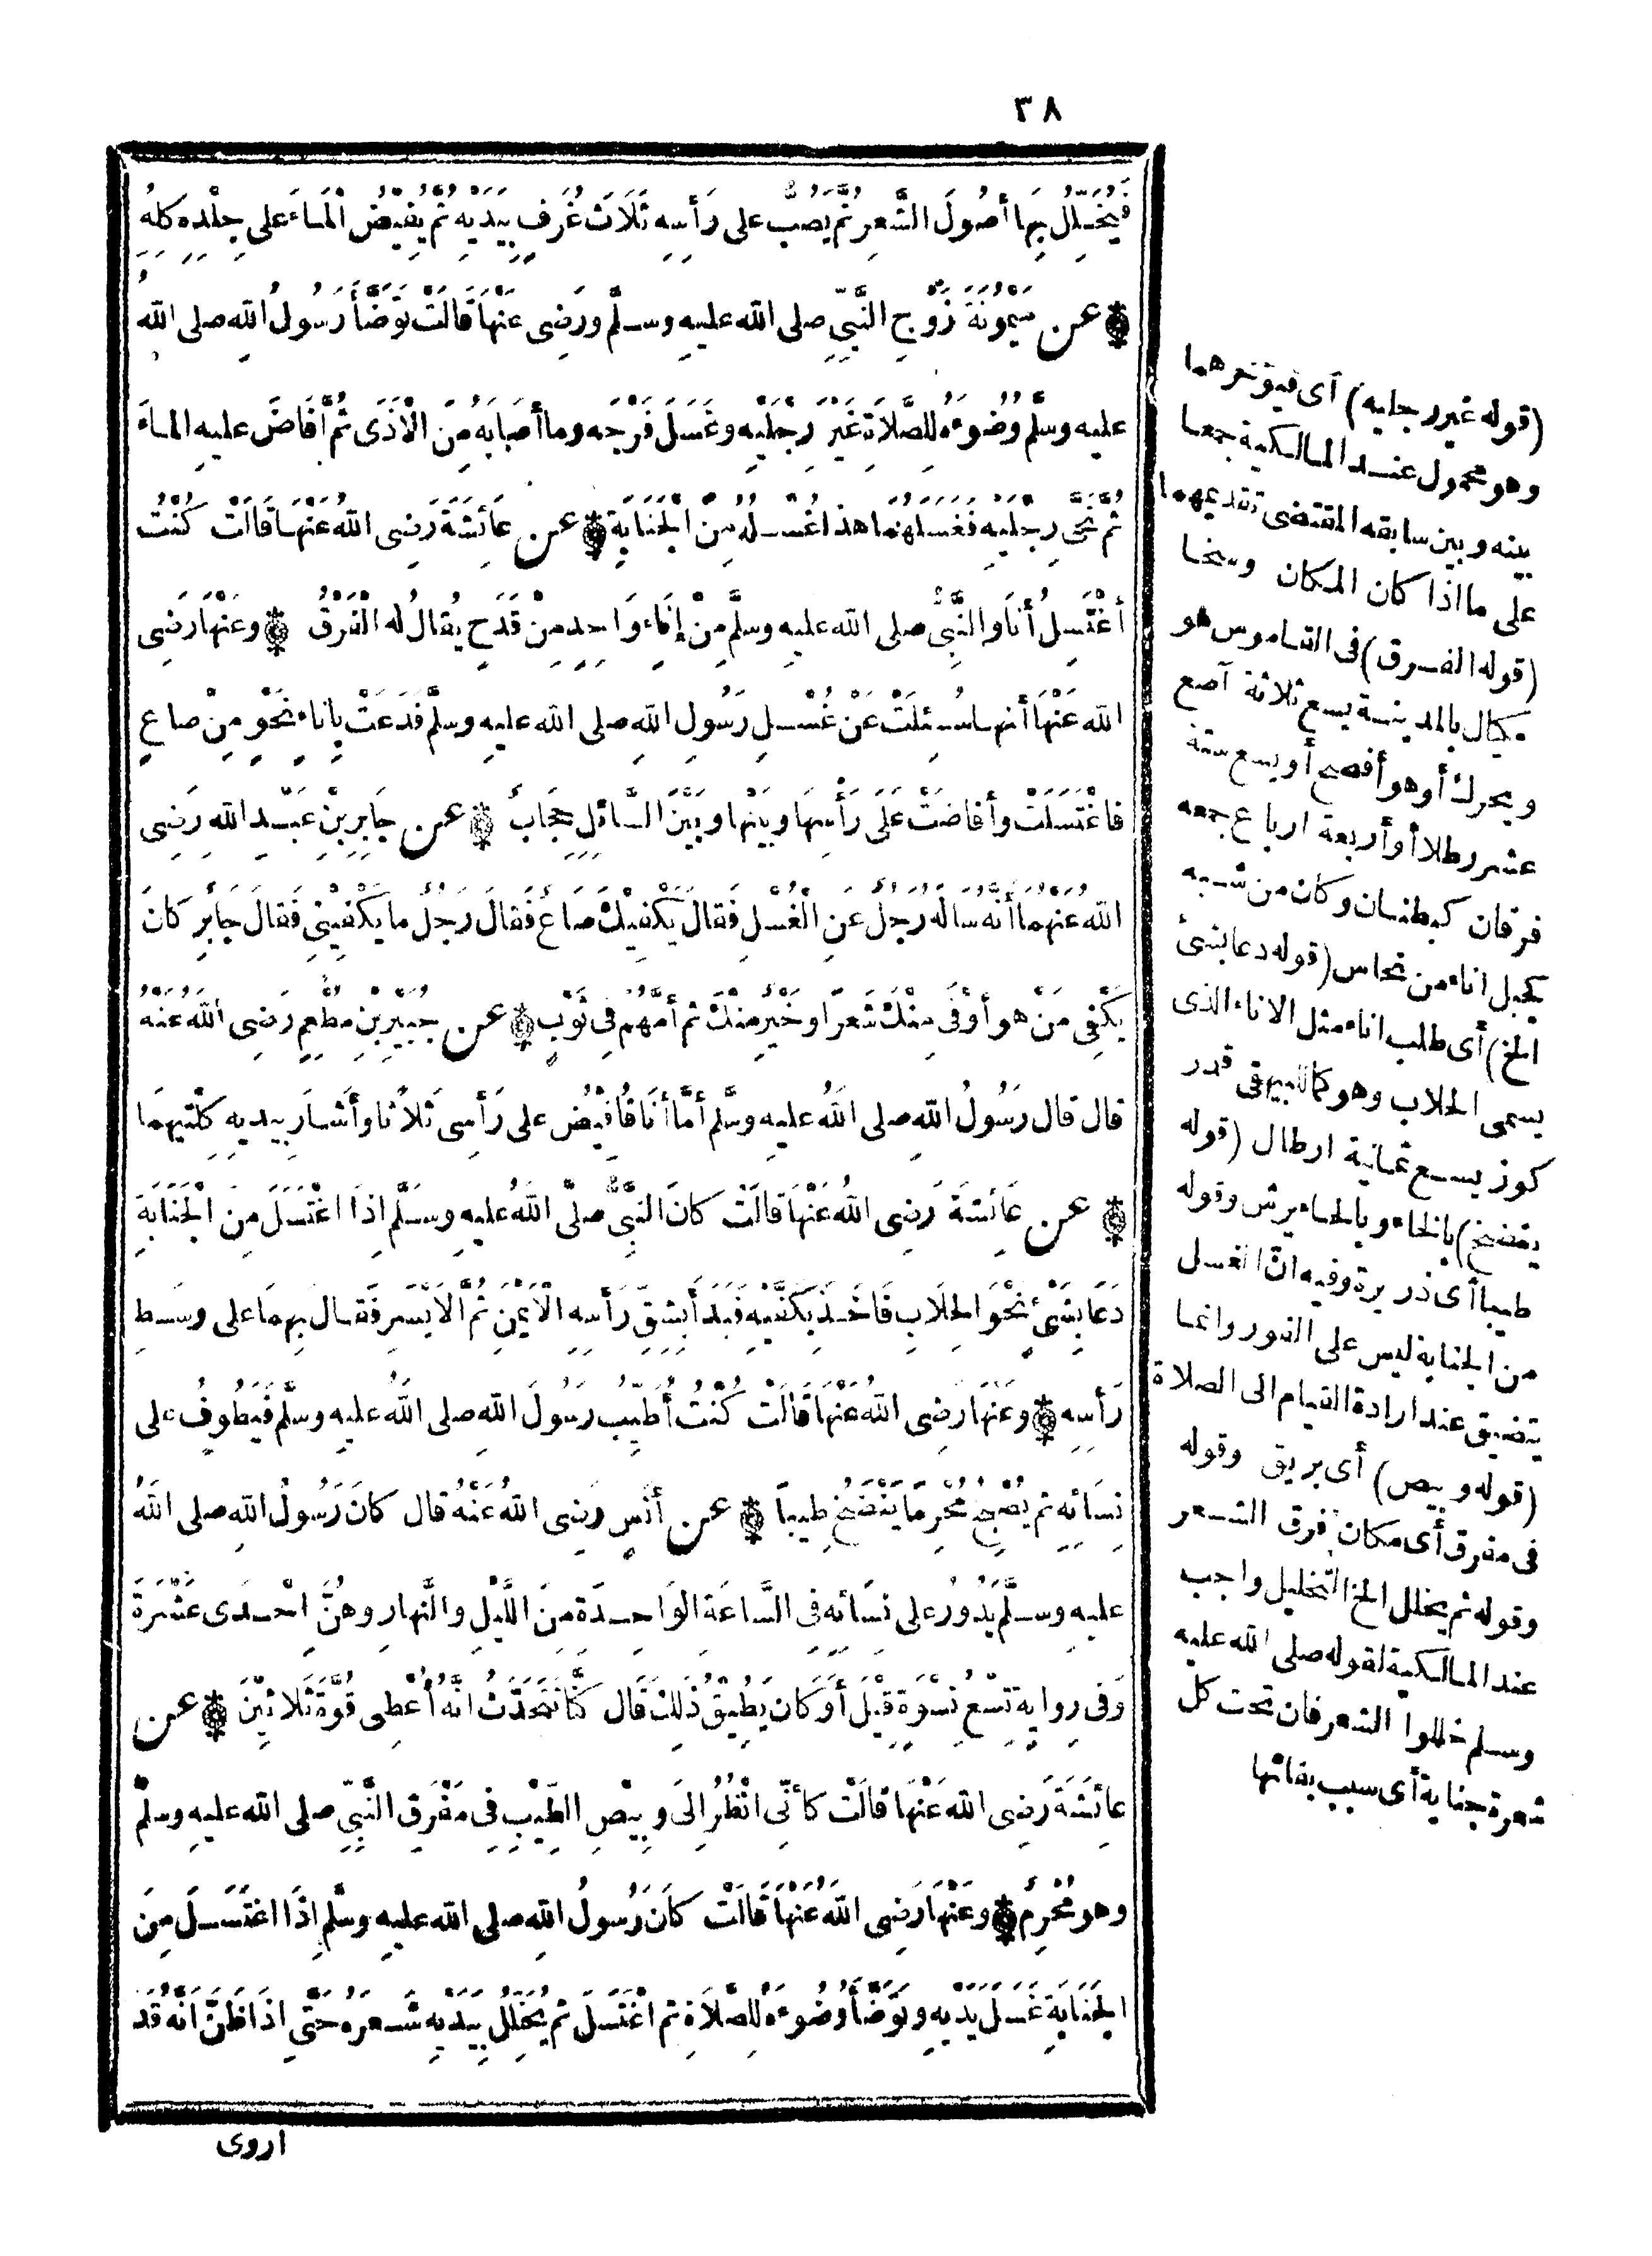 ٣٨
فَيُخَلِّلُ بِهَا أُصُولَ الشَّعَرِ ثُمَّ يَصُبُّ على رَأسِهِ ثَلَاثَ غُرَفٍ بِيَدَيْهِ ثُمَّ يُفِيْضُ الْمَاءَ على جِلْدِهِ كلِهِ
عن مَيْمُونَةَ زَوْجِ النَّبِيِّ صلى الله عليهِ وسلَّم ورَضِى عَنْهَا قَالَتْ تَوَضَّأَ رَسُولُ اللهِ صلى اللهُ
عليهِ وسلَّم وُضُوءَهُ لِلصَّلَاةِ غَيْرَ رِجْلَيْهِ وغَسَلَ فَرْجَه وما أصَابَهُ مِنَ الْأذَى ثُمَّ أفَاضَ عليهِ الماءَ
ثُمَّ نَحَّى رِجْلَيْهِ فَغَسَلَهُمَا هذا غُسْلُهُ مِنَ الْجَنَابَةِ عن عَائِشَةَ رَضِى اللهُ عَنْهَا قَالتْ كُنْتُ
أغْتَسِلُ أنَا وَالنَّبِيُّ صلى الله عليهِ وسلَّم مِنْ إنَاءٍ وَاحِدٍ مِنْ قَدَحٍ يُقالُ له الْفَرَقُ وعَنْهَا رَضِى
الله عَنْهَا أنها سُئِلَتْ عَنْ غُسْلِ رَسُولِ اللهِ صلى الله عليهِ وسلَّم فَدَعَتْ بِإناءٍ نَحْوٍ مِنْ صاعٍ
فاغْتَسَلَتْ وأفاضَتْ عَلَى رَأْسِهَا وبَيْنَها وبَيْنَ السَّائِلِ حِجَابٌ عن جَابِرِ بْنِ عَبْدِ الله رَضِى
اللهُ عَنْهما أنَّهُ سَالَهُ رَجُلٌ عَنِ الْغُسْلِ فَقالَ يَكْفِيكَ صَاعٌ فَقَالَ رَجُلٌ ما يَكْفِيْنِي فَقالَ جَابِرٌ كانَ
يَكْفِى مَنْ هو أوْفَى مِنْكَ شَعَرًا وخَيْرٌ مِنْكَ ثم أمَّهُمْ فِى ثَوْبٍ عن جُبَيْرِ بْنِ مُطْعِمٍ رَضِى اللهُ عَنْهُ
قال قال رَسُولُ اللهِ صلى اللهُ عليهِ وسَلَّم أمَّا أنَا فَأُفِيْضُ على رَأسِى ثَلَاثًا وأشارَ بِيديهِ كِلْتَيْهِمَا
عن عَائِشَةَ رَضِى اللهُ عَنْهَا قَالَتْ كانَ النَّبِيُّ صلّى اللهُ عليهِ وسَلَّم إذَا اغْتَسَلَ مِنَ الْجَنَابَةِ
دَعَا بِشَىْءٍ نَحْوَ الحِلَابِ فَأخَذَ بِكَفَّيْهِ فَبَدَأَ بِشِقِّ رَأسِهِ الْأيْمَنِ ثُمَّ الْأيْسَرِ فَقَالَ بِهِمَا على وسَطِ
رَأسِهِ وعَنْهَا رَضِى اللهُ عَنْهَا قَالَتْ كُنْتُ أُطَيِّبُ رَسُولَ اللهِ صلى اللهُ عليهِ وسلَّم فَيَطُوفُ على
نِسَائِهِ ثم يُصْبِحُ مُحْرِمًا يَنْضَخُ طِيبًا عن أنَسٍ رَضِى اللهُ عَنْهُ قال كانَ رَسُولُ اللهِ صلى اللهُ
عليهِ وسلَّم يَدُورُ على نِسَائِهِ فِى السَّاعَةِ الوَاحِدَةِ مِنَ اللَّيْلِ والنَّهارِ وهُنَّ إحْدَى عَشْرَةَ
وَفى رِوايةٍ تِسْعُ نِسْوَةٍ قِيْلَ أوَ كَان يُطِيْقُ ذَلِكَ قَال كُنَّا نَتَحَدَّثُ انَّهُ أُعْطِى قُوَّةَ ثَلَاثِيْنَ عن
عائِشَةَ رَضِى الله عَنْهَا قالَتْ كأنِّى انْظُرُ إلَى وبِيْصِ الطِّيْبِ فِى مَفْرَقِ النَّبِيِّ صلى الله عليهِ وسلمْ
وهو مُحْرِمٌ وعَنْهَا رَضِى اللهُ عَنْهَا قَالَتْ كَانَ رَسُولُ اللهِ صلى الله عليهِ وسلَّم إذَا اغتَسَلَ مِنَ
الجَنَابَةِ غَسَلَ يَدَيْهِ وتَوَضَّأَ وُضُوءَهُ لِلصَّلَاةِ ثم اغْتَسَلَ ثم يُخَلِّلُ بِيَدَيْهِ شَعَرَهُ حَتَّى إذَا ظَنَّ انَّهُ قَدْ
اروى
(قوله غير رجليه) أى فيؤخرهما
وهو محمول عند المالكية جمعا
بينه وبين سابقه المقتضى تقديمهما
على ما اذا كان المكان وسخا
(قوله الفرق) فى القاموس هو
مكيال بالمدينة يسع ثلاثة آصع
ويحرك أو هو أفصح أو يسع ستة
عشر رطلا أو أربعة ارباع جمعه
فرقان كبطنان وكان من شبه
يحبل اناء من نحاس (قوله دعا بشئ
الخ) أى طلب اناء مثل الاناء الذى
يسمى الحلاب وهو كما للبيهقى قدر
كوز يسع ثمانية ارطال (قوله
ينضخ) بالخاء وبالحاء يرش وقوله
طيبا أى ذريرة وفيه ان الغسل
من الجنابة ليس على الفور وانما
يتضيق عند ارادة القيام الى الصلاة
(قوله وبيص) أى بريق وقوله
فى مفرق أى مكان فرق الشعر
وقوله ثم يخلل الخ التخليل واجب
عند المالكية لقوله صلى الله عليه
وسلم خللوا الشعر فان تحت كل
شعرة جناية أى سبب بقائها